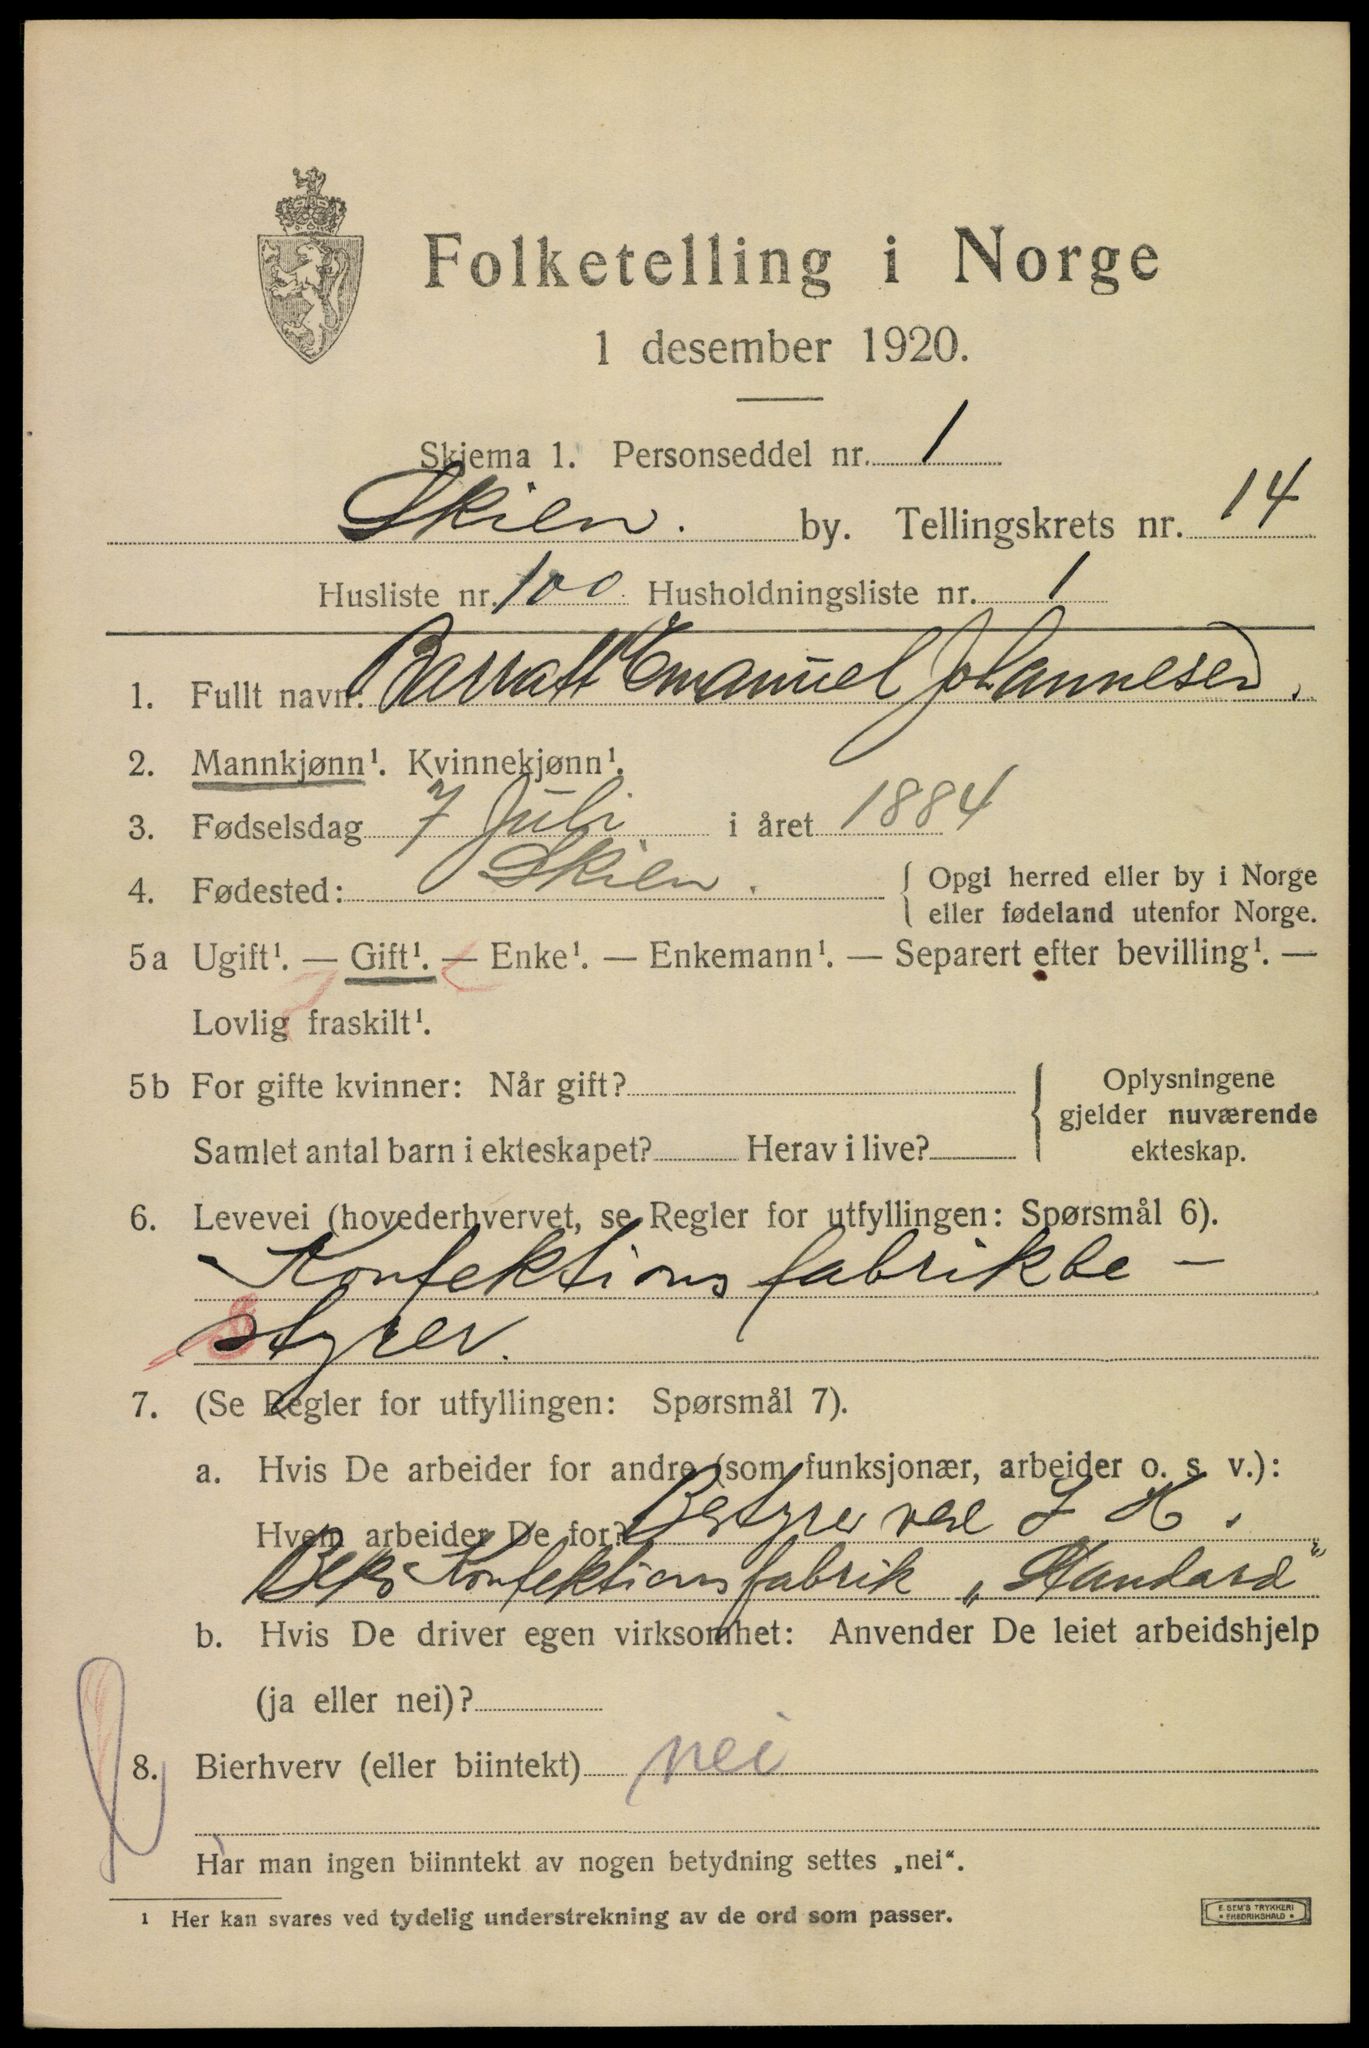 Folketelling i Norge
1 desember 1920.
Skjema 1. Personseddel nr. 1
Skien. by. Tellingskrets nr. 14
Husliste nr. 100 Husholdningsliste nr. 1
1. Fullt navn. Barratt Emanuel Johannesen.
2. Mannkjønn¹. Kvinnekjønn¹.
3. Fødselsdag 7 Juli i året 1884
4. Fødested: Skien. { Opgi herred eller by i Norge
eller fødeland utenfor Norge.
5a Ugift¹. — Gift¹. — Enke¹. — Enkemann¹. — Separert efter bevilling¹. —
Lovlig fraskilt¹.
5b For gifte kvinner: Når gift? { Oplysningene
gjelder nuværende
Samlet antal barn i ekteskapet? Herav i live? ekteskap.
6. Levevei (hovederhvervet, se Regler for utfyllingen: Spørsmål 6).
Konfektionsfabrikbe-
styrer.
7. (Se Regler for utfyllingen: Spørsmål 7).
a. Hvis De arbeider for andre (som funksjonær, arbeider o. s. v.):
Hvem arbeider De for? Bestyrer ved
Konfektionsfabrik „Standard"
b. Hvis De driver egen virksomhet: Anvender De leiet arbeidshjelp
(ja eller nei)?
8. Bierhverv (eller biintekt) nei
Har man ingen biinntekt av nogen betydning settes „nei".
¹ Her kan svares ved tydelig understrekning av de ord som passer.
E. SEM'S TRYKKERI
• FREDRIKSHALD •